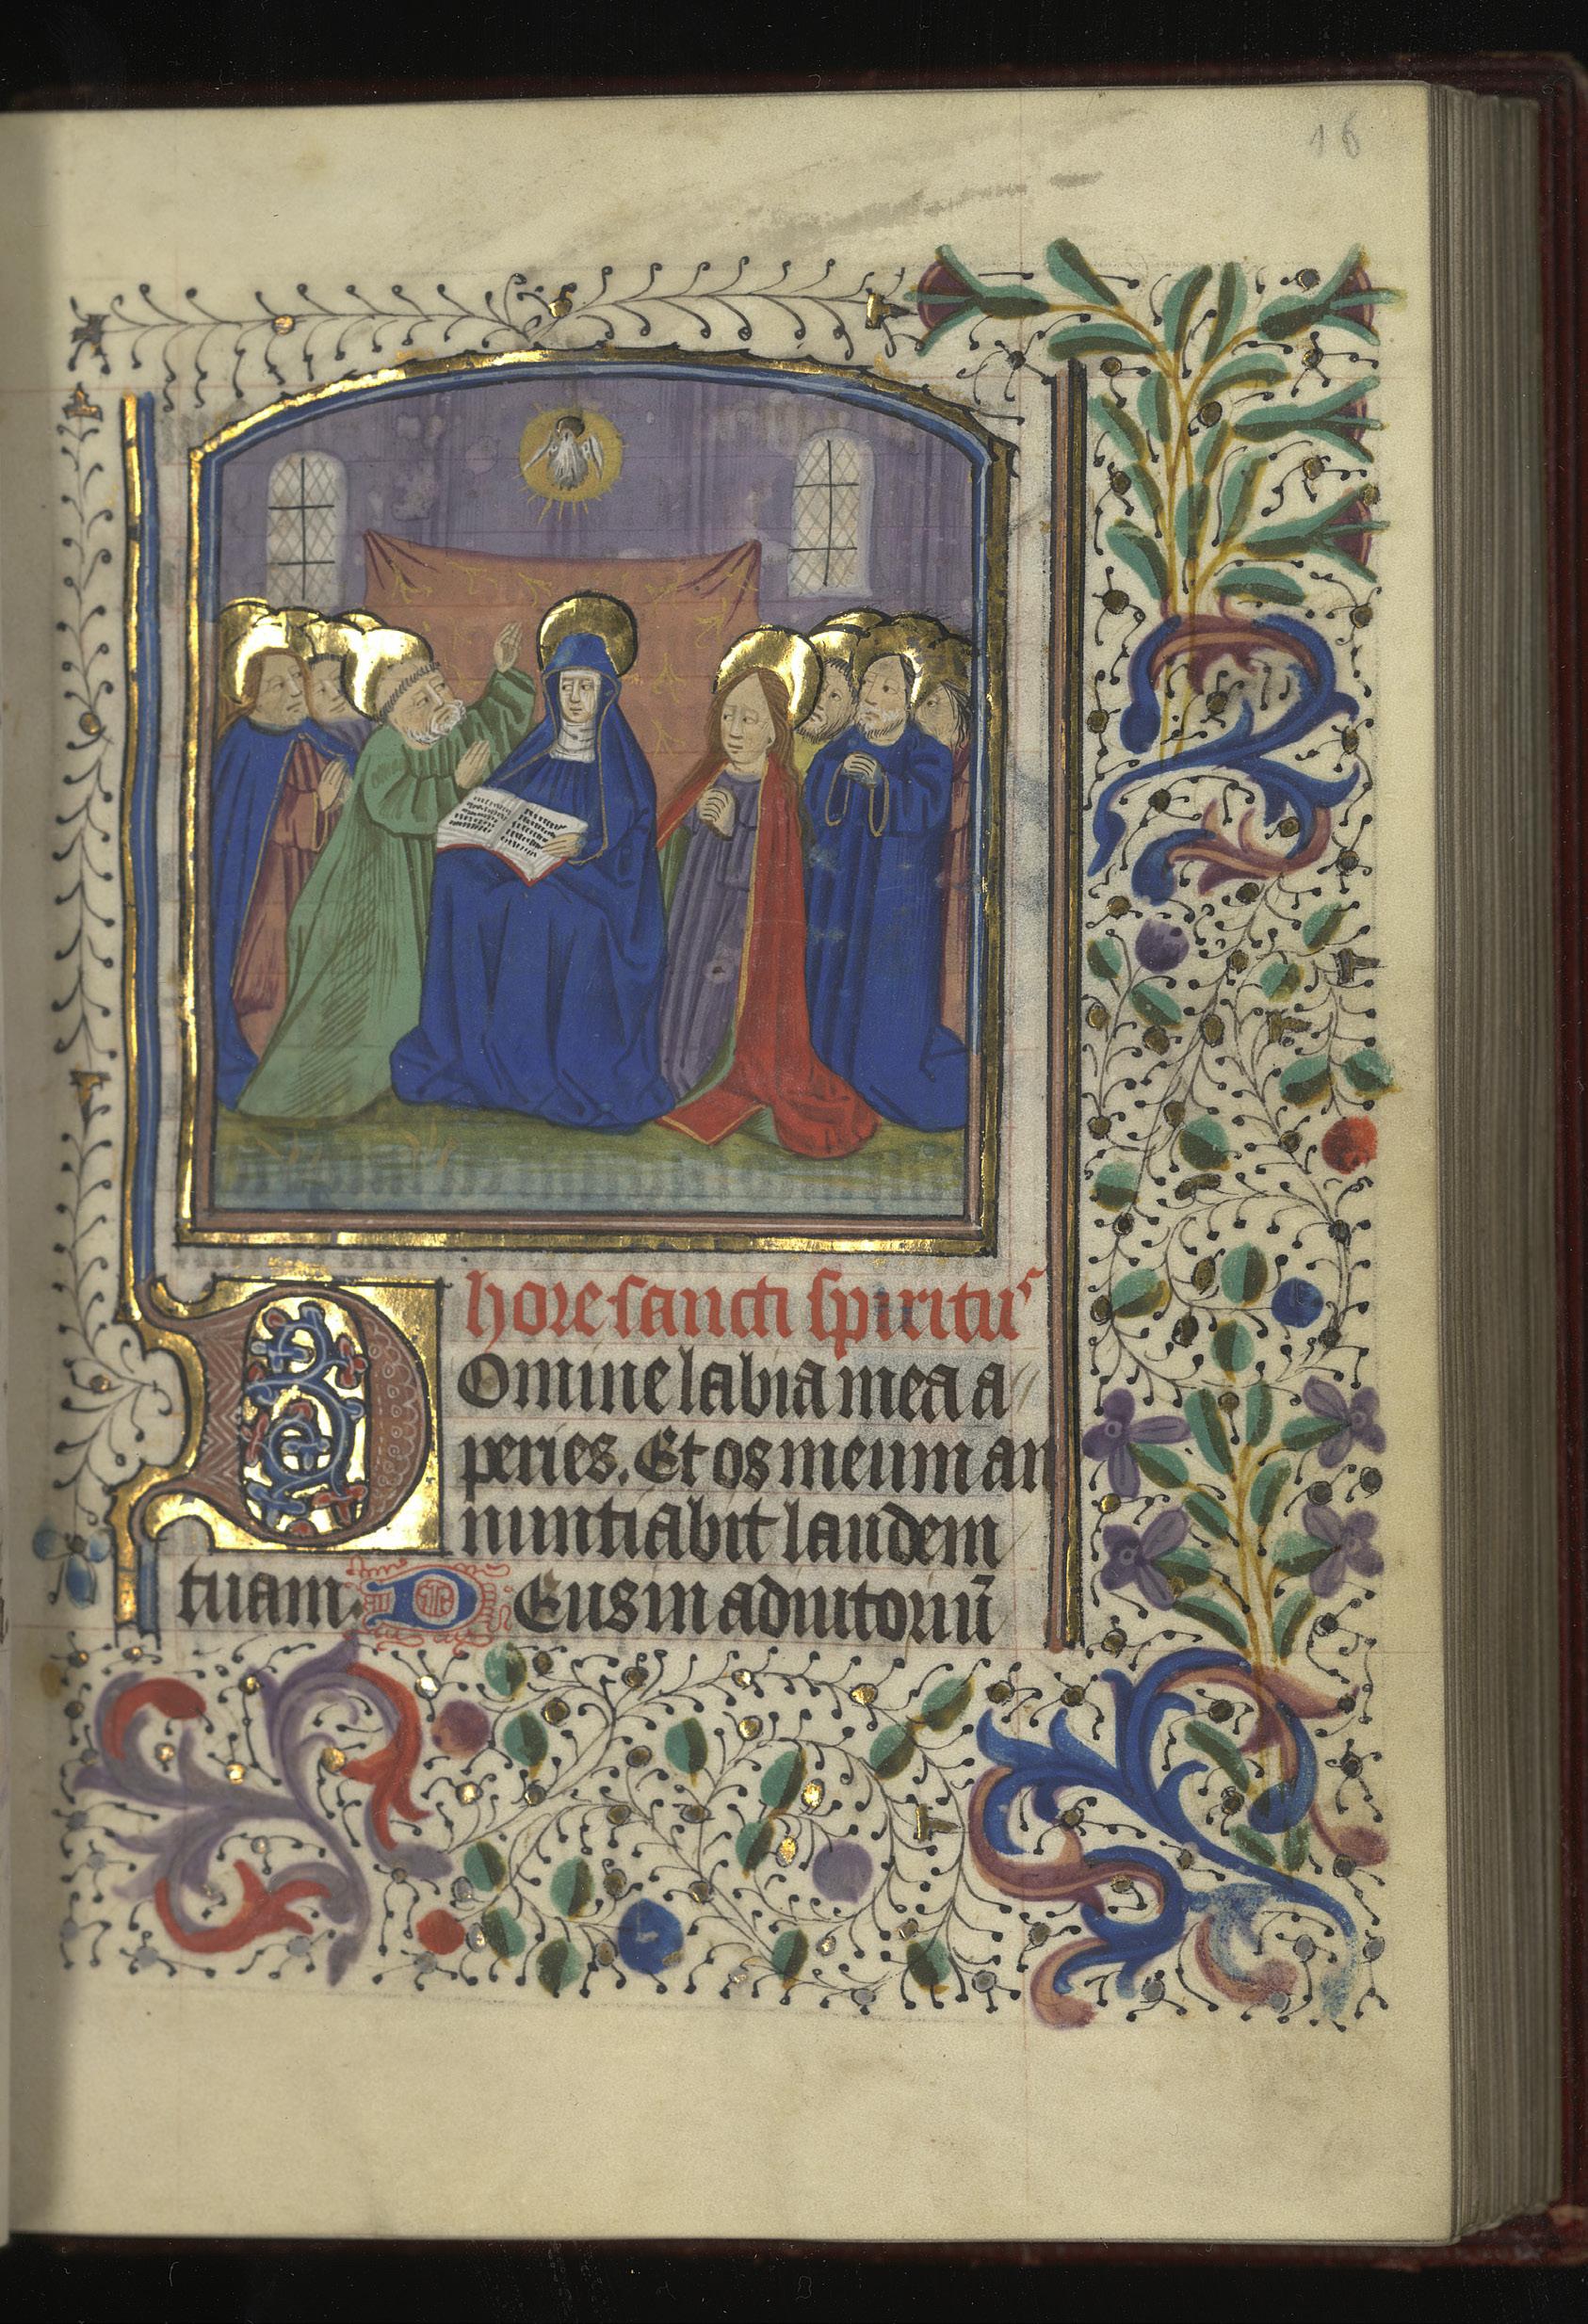 16
hore sancti spiritus
Domine labia mea a
peries. Et os meum an
nuntiabit laudem
tuam. Deus in adiutoriū